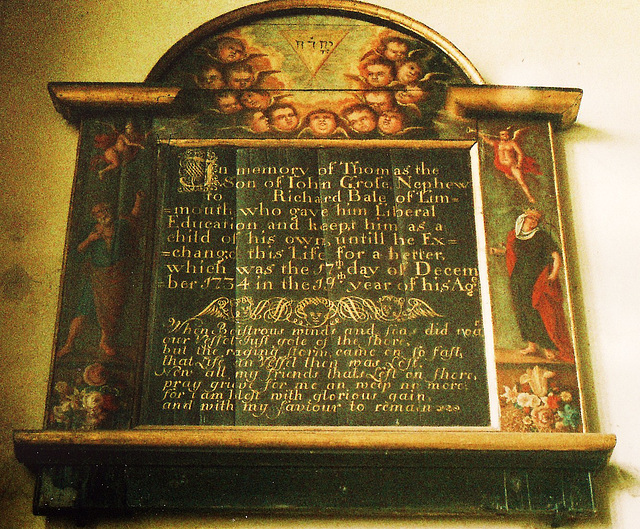 יהוה
In memory of Thomas the
Son of Iohn Grose, Nephew
to Richard Bale of Lim=
=mouth who gave him Liberal
Education, and keept him as a
child of his own, untill he Ex=
=changd this Life for a better.
which was the 17th day of Decem
=ber 1734 in the 19th year of his Age
When Boistrous winds and seas did roar
our Vessel Just gote of the shore,
but the raging storm, came on so fast,
that Life an Vessel then was Lost.
Now all my friends thats Left on shore,
pray grive for me an weep no more
for I am blest with glorious gain
and with my saviour to remain